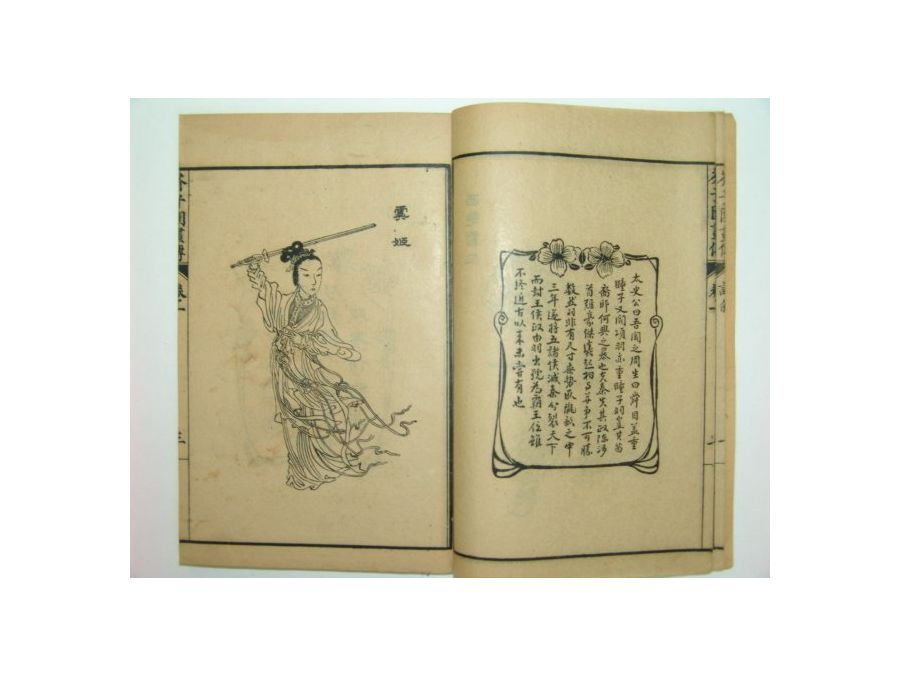 芥子園畫傳
太史公曰吾聞之周生曰舜目蓋重
瞳子又聞項羽亦重瞳子羽豈其苗
裔邪何興之暴也夫秦失其政陳涉
首難豪傑蠭起相與並爭不可勝
數然羽非有尺寸乘勢起隴畝之中
三年遂將五諸侯滅秦分裂天下
而封王侯政由羽出號為霸王位雖
不終近古以來未嘗有也
虞姬
芥子園畫傳
三